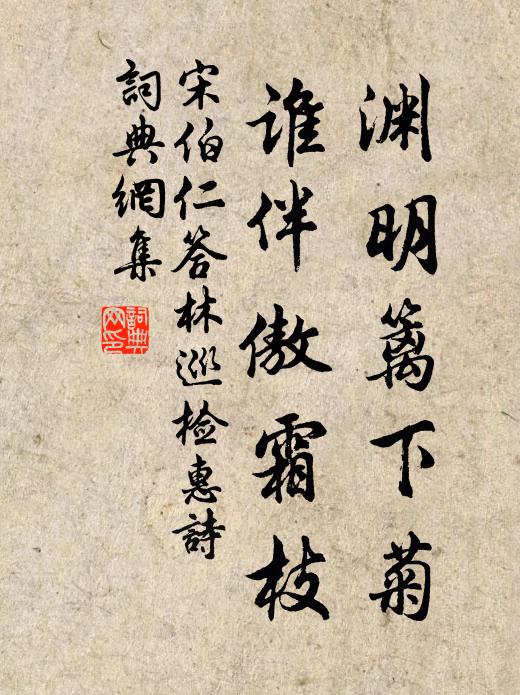 渊明篱下菊
谁伴傲霜枝
宋伯仁答林巡检惠詩
詞典網集
詞典网印